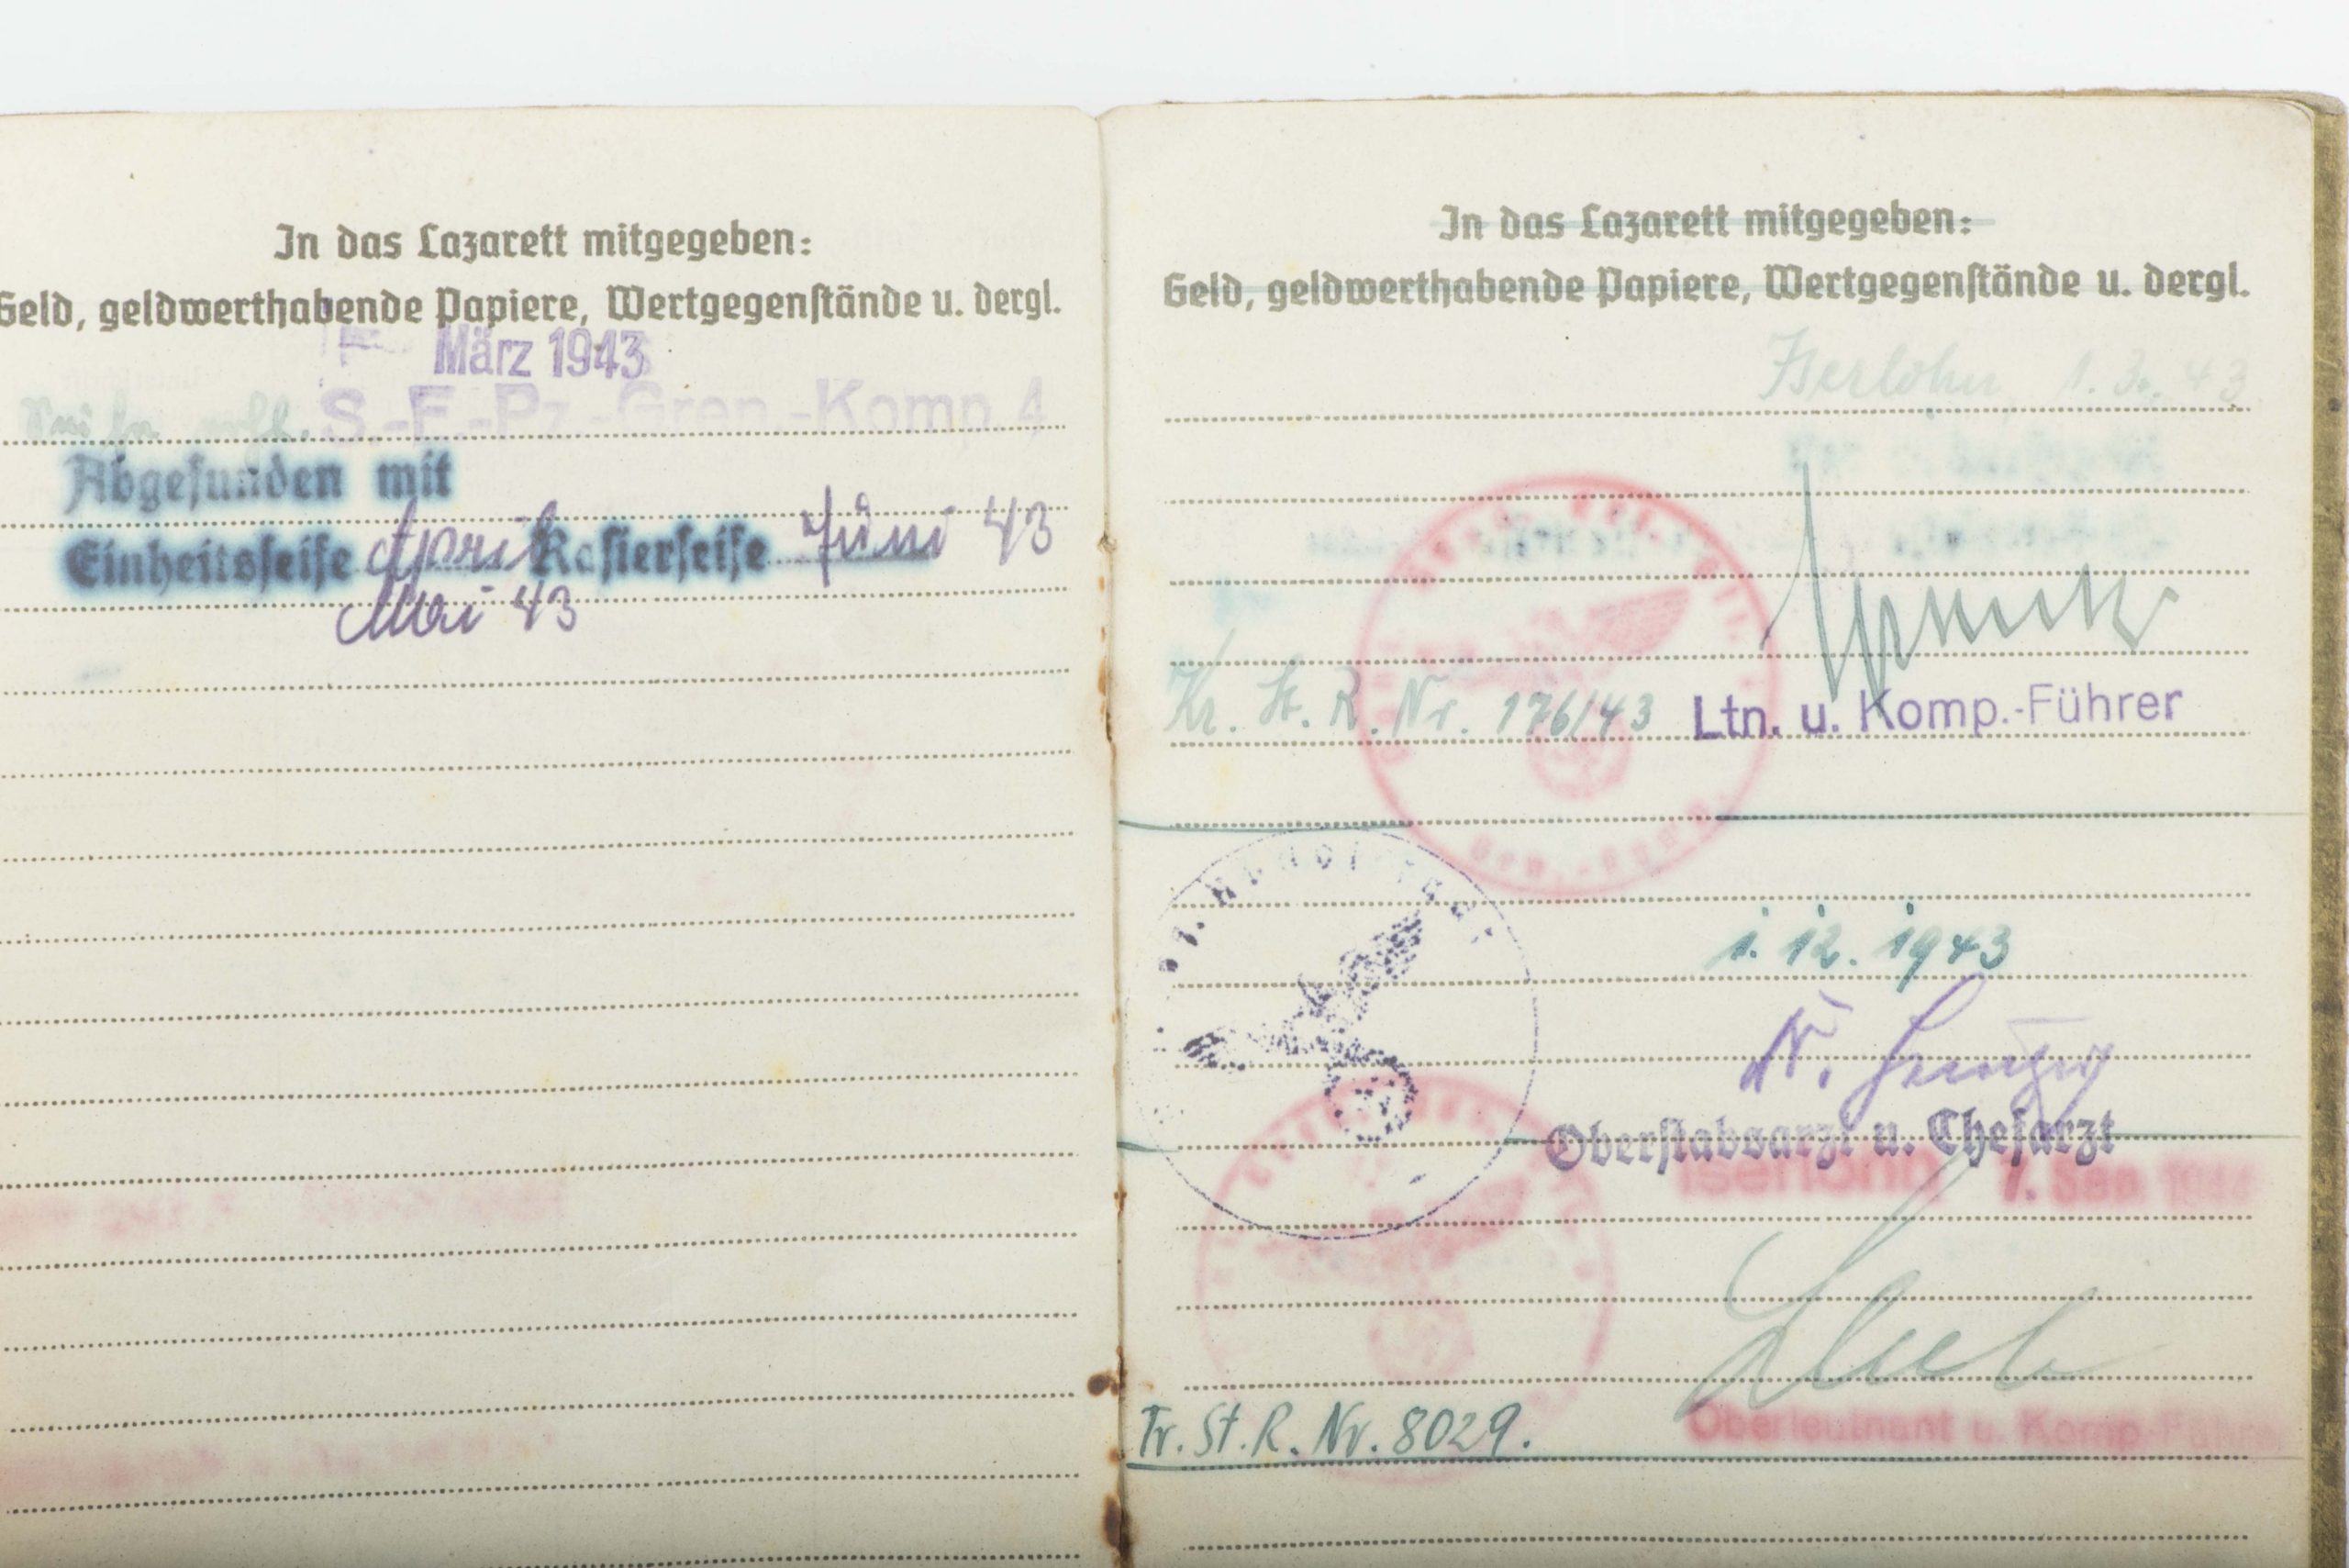 In das Lazarett mitgegeben:
Geld, geldwerthabende Papiere, Wertgegenstände u. dergl.
März 1943
S.-E.-Pz.-Gren.-Komp. 4
Abgefunden mit
Einheitsseife April Rasierseife Juni 43
Mai 43
In das Lazarett mitgegeben:
Geld, geldwerthabende Papiere, Wertgegenstände u. dergl.
Iserlohn 1. 3. 43
Kr. St. R. Nr. 176/43 Ltn. u. Komp.-Führer
1. 12. 1943
Oberstabsarzt u. Chefarzt
Iserlohn
Tr. St. R. Nr. 8029.
Oberleutnant u. Komp.-Führer